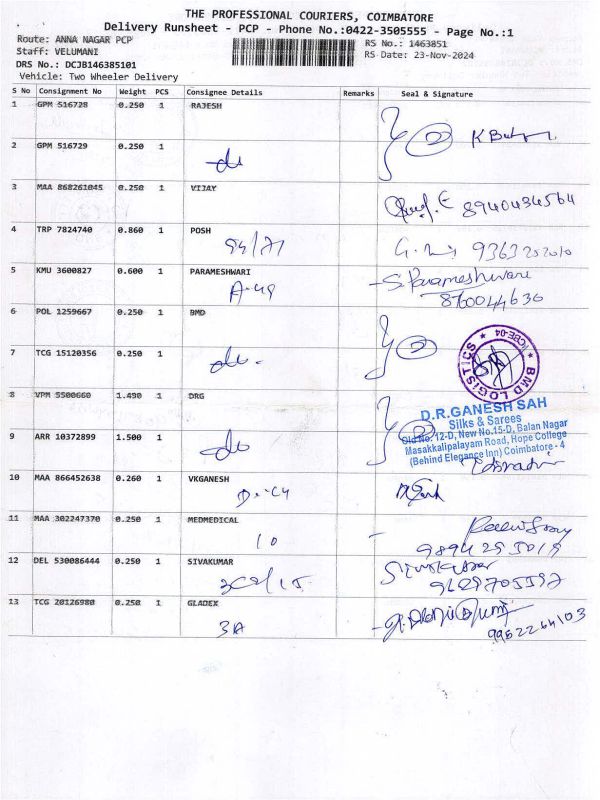 THE PROFESSIONAL COURIERS, COIMBATORE
Delivery Runsheet - PCP - Phone No.:0422-3505555 - Page No.:1
Route: ANNA NAGAR PCP
RS No.: 1463851
Staff: VELUMANI
RS Date: 23-Nov-2024
DRS No.: DCJB146385101
Vehicle: Two Wheeler Delivery
S No Consignment No Weight PCS Consignee Details Remarks Seal & Signature
1 GPM 516728 0.250 1 RAJESH
2 GPM 516729 0.250 1
do
3 MAA 868261045 0.250 1 VIJAY
8940434564
4 TRP 7824740 0.860 1 POSH
5 KMU 3600827 0.600 1 PARAMESHWARI
S.Parameshwari
A-49
8760044636
6 POL 1259667 0.250 1 BMD
7 TCG 15120356 0.250 1
do
BMD LOGISTICS
CBE-04
8 VPM 5500660 1.490 1 DRG
D.R.GANESH SAH
Silks & Sarees
Old No. 12-D, New No.15-D, Balan Nagar
Masakkalipalayam Road, Hope College
(Behind Elegance Inn) Coimbatore - 4
9 ARR 10372899 1.500 1
do
10 MAA 866452638 0.260 1 VKGANESH
11 MAA 302247370 0.250 1 MEDMEDICAL
10
9894295019
12 DEL 530086444 0.250 1 SIVAKUMAR
Sivakumar
9629705597
13 TCG 20126980 0.250 1 GLADEX
3A
9952264103